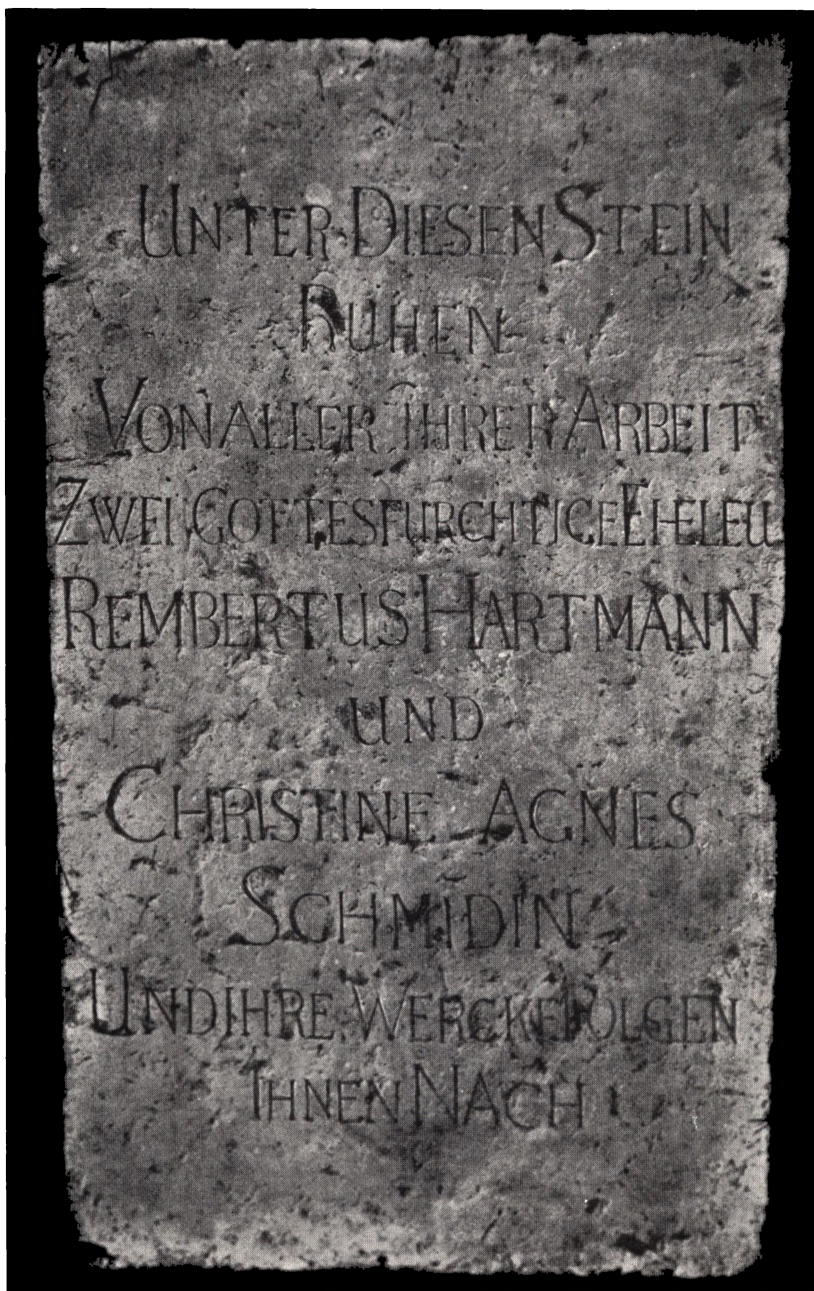 UNTER DIESEN STEIN
RUHEN
VON ALLER IHRER ARBEIT
ZWEI GOTTESFURCHTIGE EHELEU
REMBERTUS HARTMANN
UND
CHRISTINE AGNES
SCHMIDIN
UND IHRE WERCKE FOLGEN
IHNEN NACH